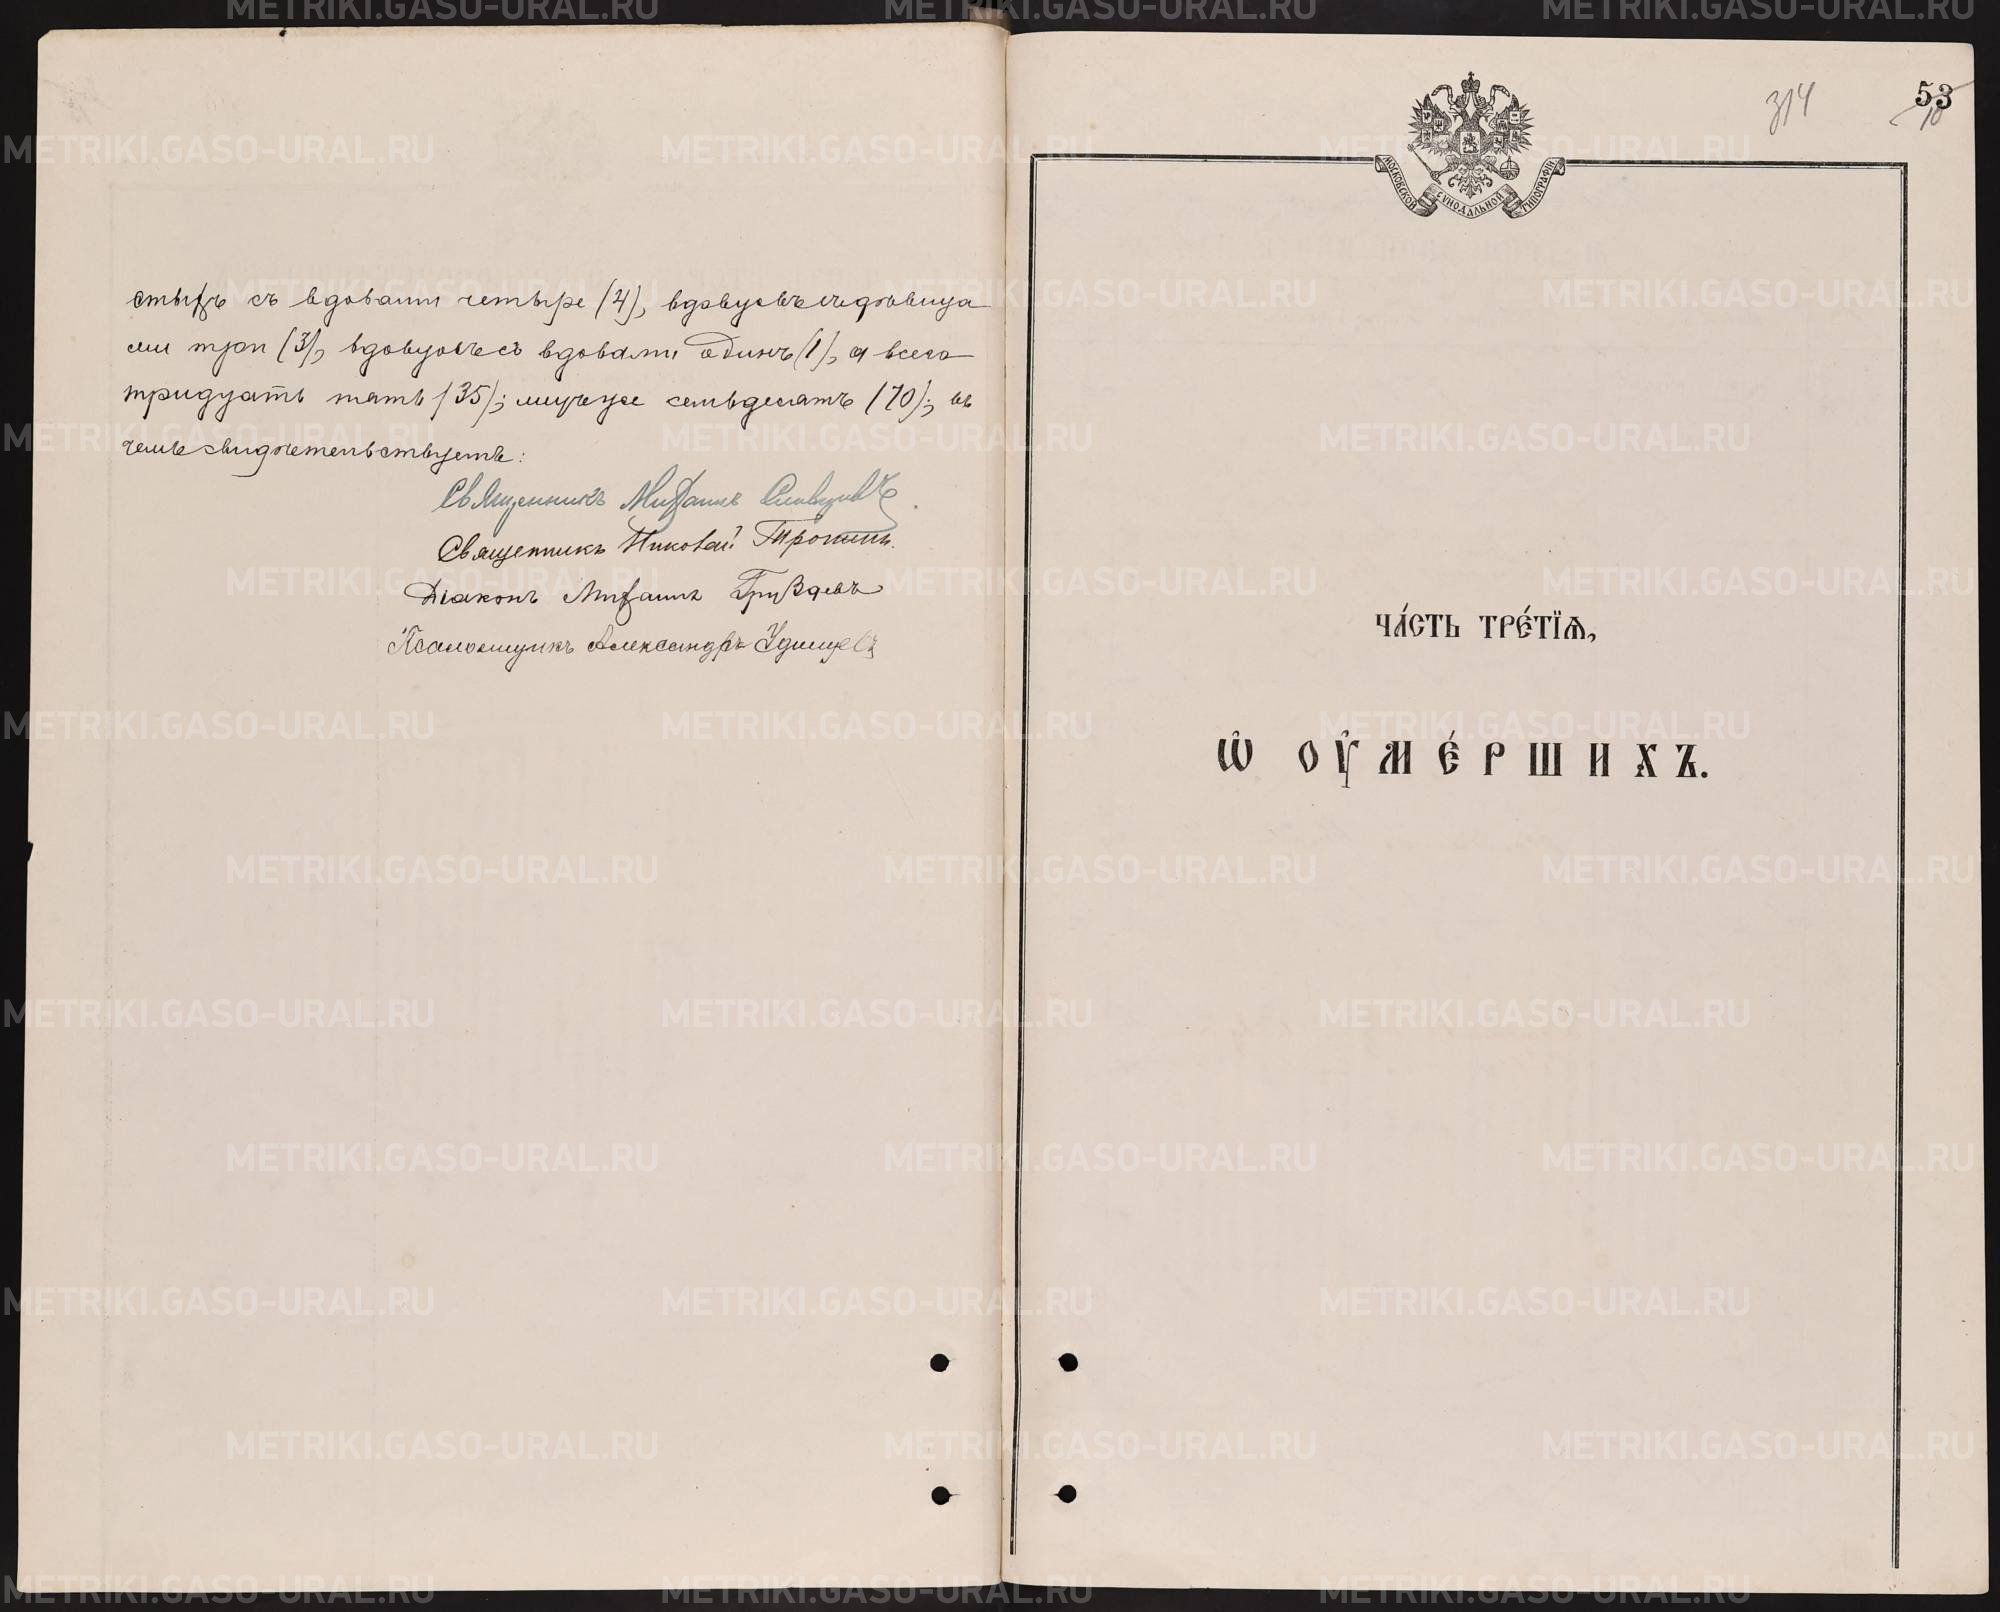 стыхъ съ вдовами четыре (4), вдовцовъ съ дѣвица
ми три (3), вдовцовъ съ вдовами одинъ (1), а всего
тридцать пять (35); лицъ же семьдесятъ (70); въ
чемъ свидѣтельствуемъ:
Священникъ Михаилъ Словцовъ.
Священникъ Николай Тронинъ.
Діаконъ Михаилъ Груздевъ
Псаломщикъ Александръ Удинцевъ
314
53
МОСКОВСКОЙ СѴНОДАЛЬНОЙ ТИПОГРАФІИ
ЧА́СТЬ ТРЕ́ТЇѦ,
Ѡ҆ ОУ҆МЕ́РШИХЪ.
METRIKI.GASO-URAL.RU